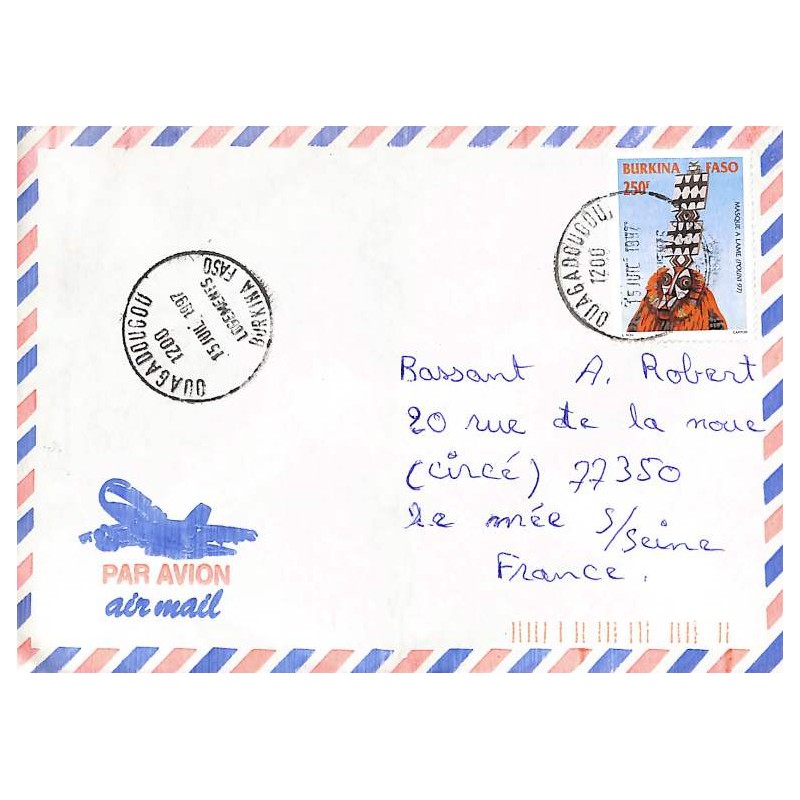 BURKINA FASO
250F
MASQUE A LAME (POUNI 97)
CARTOR
OUAGADOUGOU
1200
15 JUIL 1997
OUAGADOUGOU
1200
15 JUIL. 1997
LOGEMENTS
BURKINA FASO
Bassant A. Robert
20 rue de la noue
(circé) 77350
Le mée s/seine
France.
PAR AVION
air mail